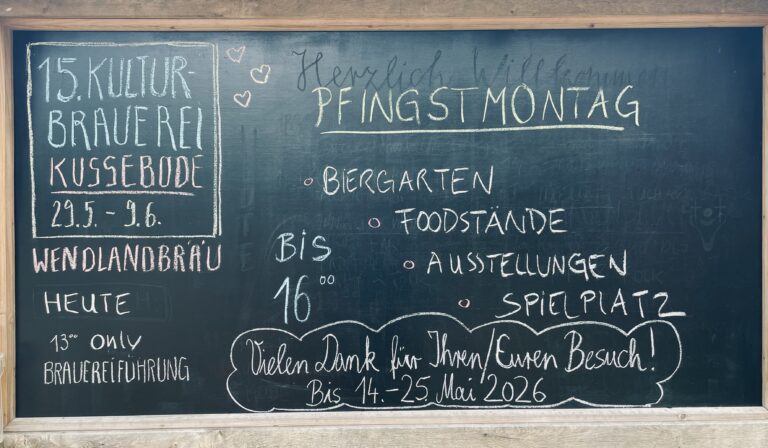 15. KULTUR-
BRAUEREI
KUSSEBODE
29.5. - 9.6.
WENDLANDBRÄU
HEUTE
13⁰⁰ only
BRAUEREIFÜHRUNG
Herzlich Willkommen
PFINGSTMONTAG
BIERGARTEN
FOODSTÄNDE
AUSSTELLUNGEN
SPIELPLATZ
BIS
16⁰⁰
Vielen Dank für Ihren/Euren Besuch!
Bis 14.-25. Mai 2026